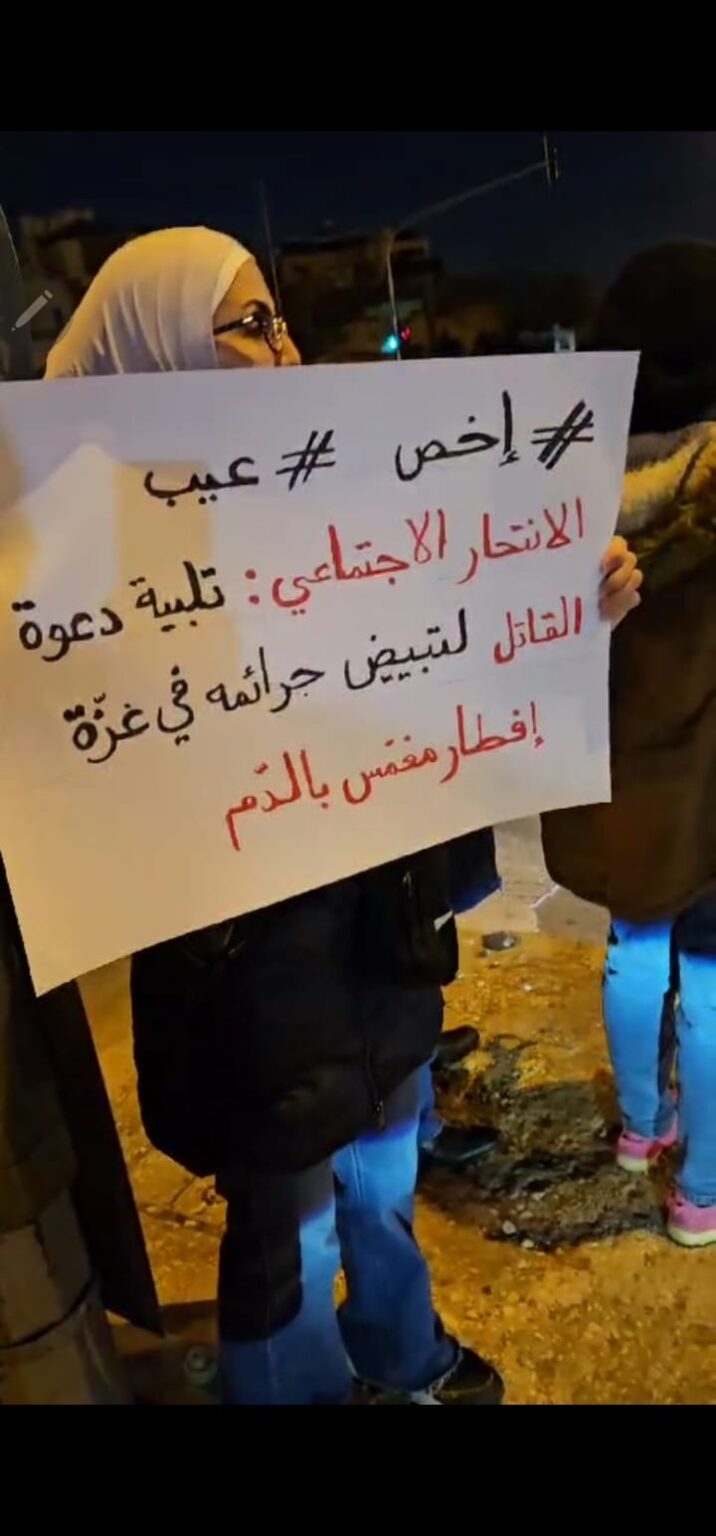 #إخص #عيب
الانتحار الاجتماعي: تلبية دعوة
القاتل لتبييض جرائمه في غزّة
إفطار مغمّس بالدّم